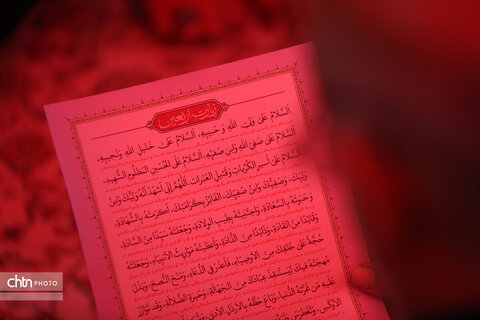 زیارت اربعین
اَلسَّلامُ عَلی وَلِیِّ اللهِ وَ حَبیبِهِ، اَلسَّلامُ عَلی خَلیلِ اللهِ وَ نَجیبِهِ،
اَلسَّلامُ عَلی صَفِیِّ اللهِ وَابْنِ صَفِیِّهِ، اَلسَّلامُ عَلی الْحُسَیْنِ الْمَظْلُومِ الشَّهیدِ،
اَلسَّلامُ عَلی اَسیرِ الْکُرُباتِ وَ قَتیلِ الْعَبَراتِ. اَللّهُمَّ اِنّی اَشْهَدُ اَنَّهُ وَلِیُّکَ وَابْنُ
وَلِیِّکَ، وَ صَفِیُّکَ وَابْنُ صَفِیِّکَ، اَلْفائِزُ بِکَرامَتِکَ، اَکْرَمْتَهُ بِالشَّهادَةِ،
وَ حَبَوْتَهُ بِالسَّعادَةِ، وَاجْتَبَیْتَهُ بِطیبِ الْوِلادَةِ، وَ جَعَلْتَهُ سَیِّداً مِنَ السّادَةِ،
وَ قائِداً مِنَ الْقادَةِ، وَ ذائِداً مِنَ الذّادَةِ، وَ اَعْطَیْتَهُ مَواریثَ الْاَنْبِیاءِ، وَ جَعَلْتَهُ
حُجَّةً عَلی خَلْقِکَ مِنَ الْاَوْصِیاءِ، فَاَعْذَرَ فِی الدُّعاءِ، وَ مَنَحَ النُّصْحَ، وَ بَذَلَ
مُهْجَتَهُ فیکَ لِیَسْتَنْقِذَ عِبادَکَ مِنَ الْجَهالَةِ، وَ حَیْرَةِ الضَّلالَةِ، وَ قَدْ تَوازَرَ
عَلَیْهِ مَنْ غَرَّتْهُ الدُّنْیا، وَ باعَ حَظَّهُ بِالْاَرْذَلِ الْاَدْنی،
الْاَوْکَسِ، وَ تَغَطْرَسَ
chtn PHOTO